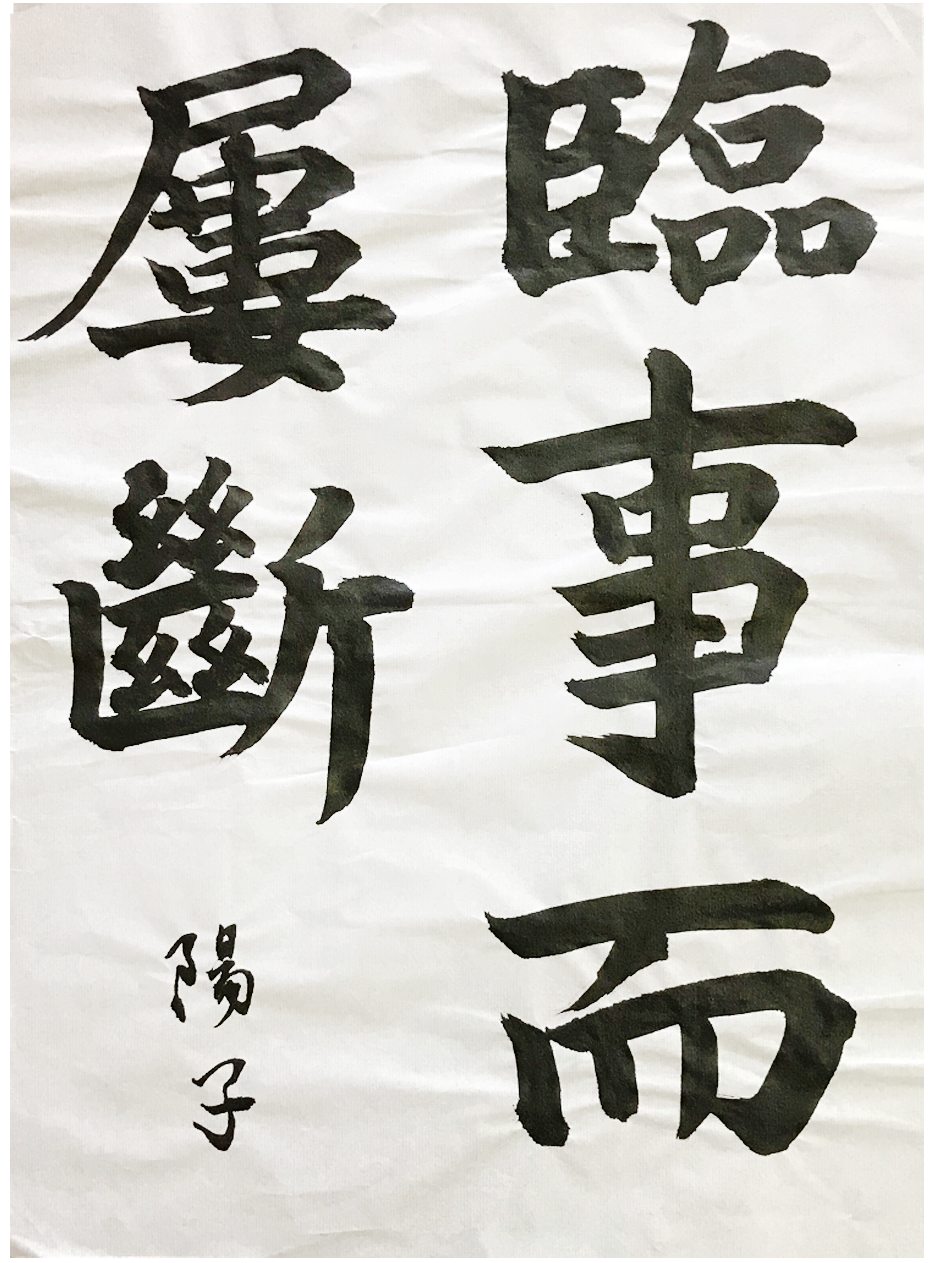 臨事而
屢斷
陽子